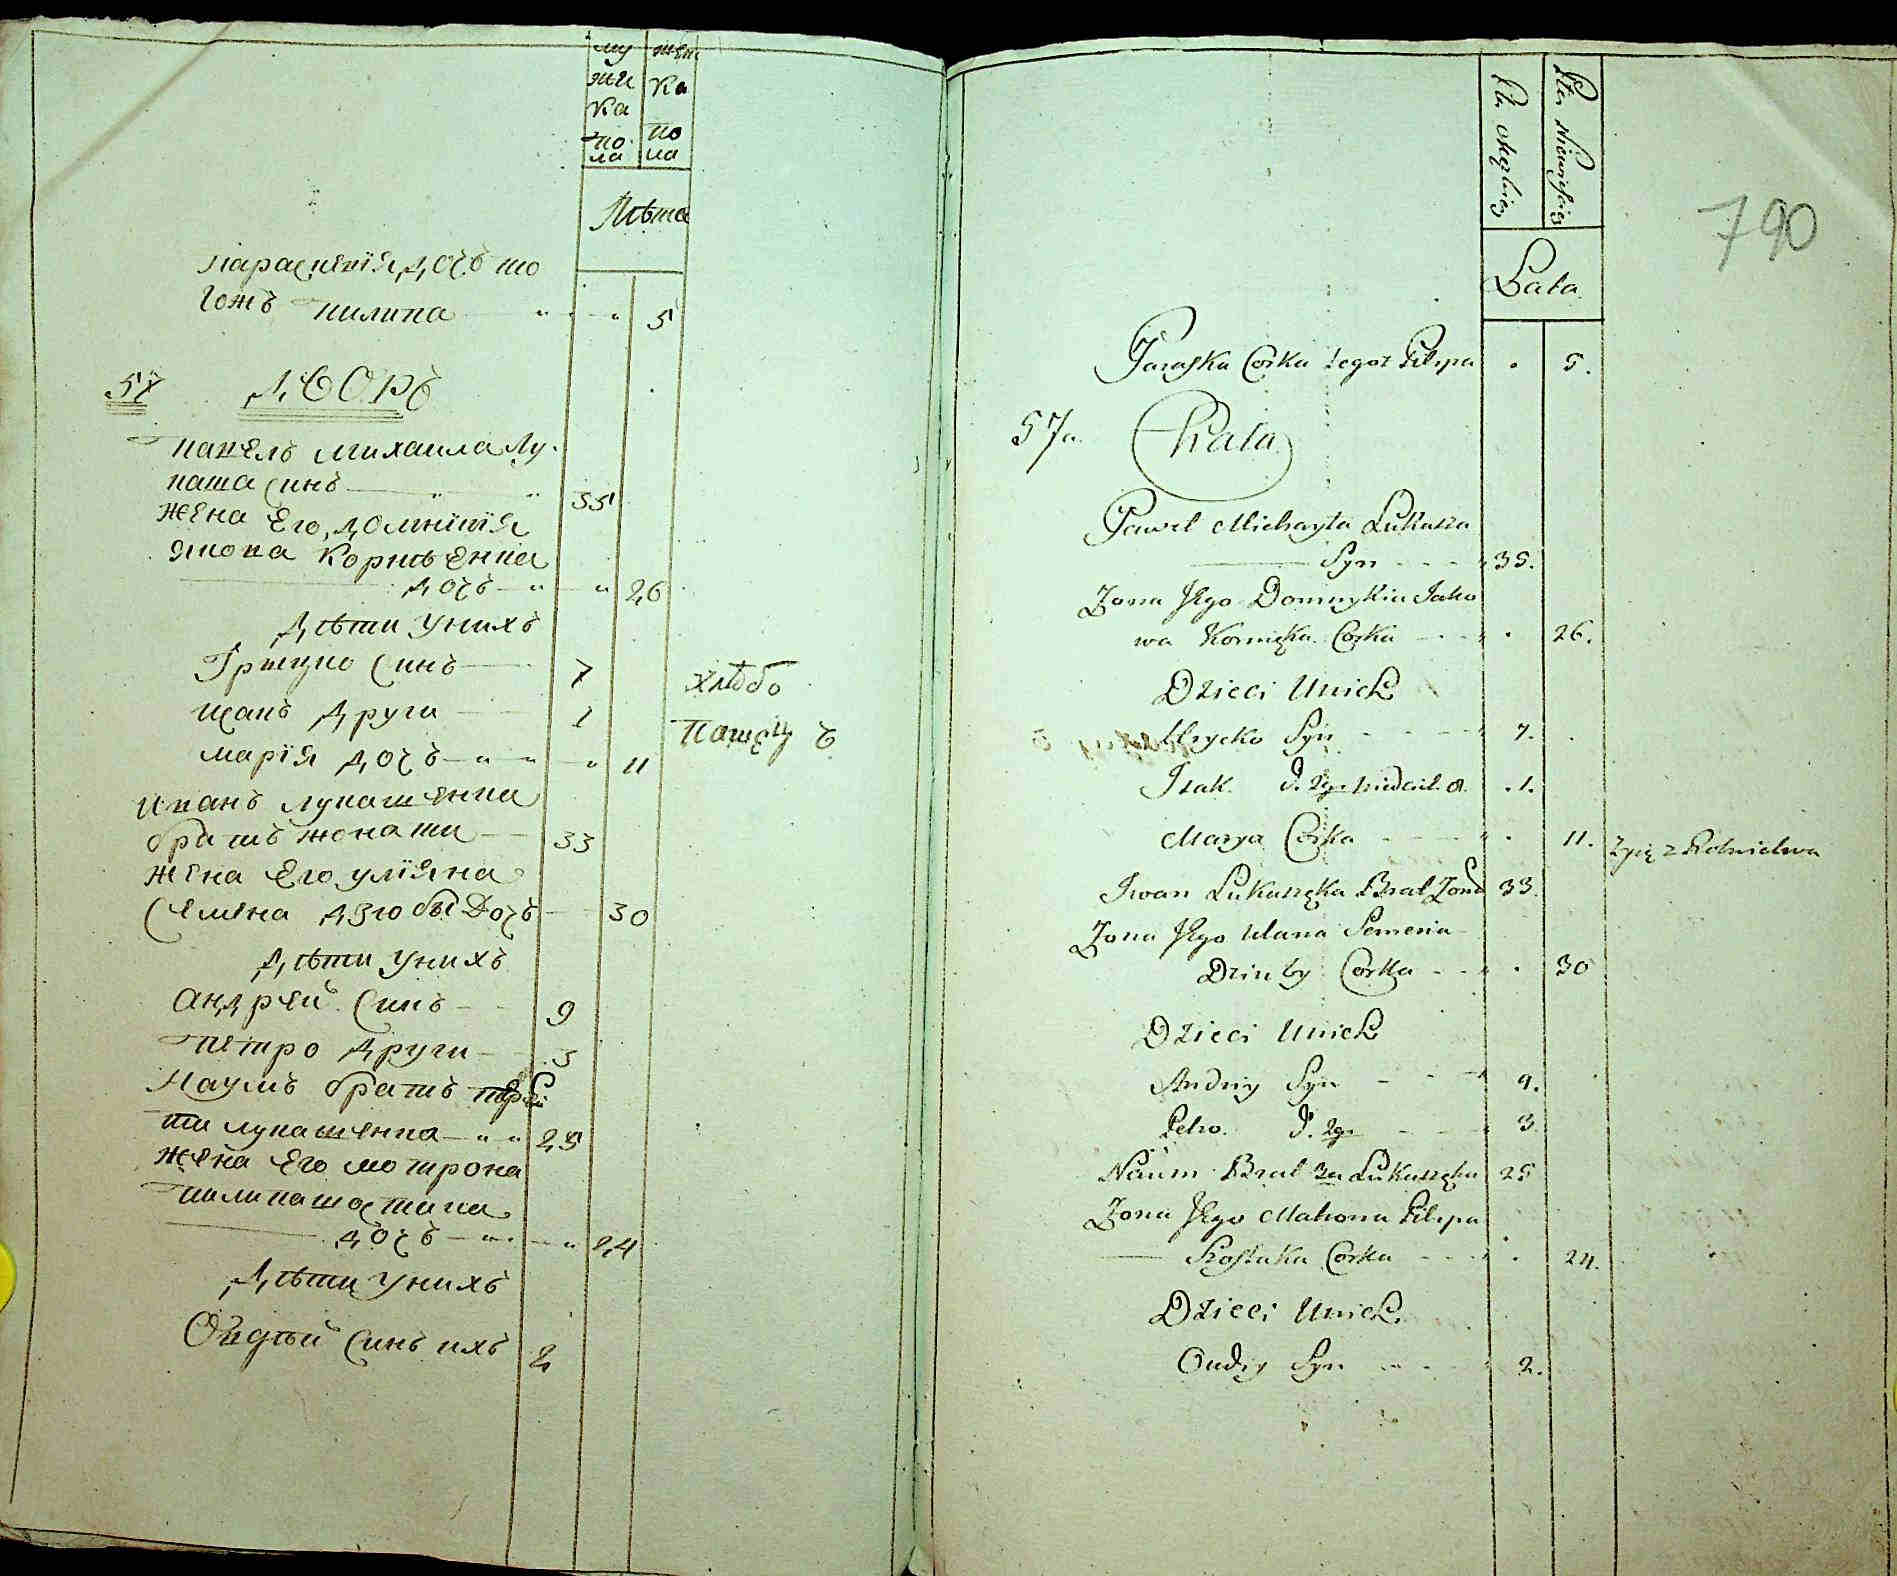 му
жес
ка
по
ла
жен
ка
по
ла
Лѣта
Параскевія дочь то
гожъ Пилипа 5
57 Дворъ
Павелъ Михаила Лу
каша синъ 35
жена Его Домникія
Якова Корнѣенка
дочь 26
Дѣти унихъ
Грицко синъ 7
Ицакъ други 1
марія дочь 11
хлѣбо
Пашецъ
Иванъ Лукашенка
братъ жонати 33
жена Его Уліяна
Семена Дзюбы Дочь 30
Дѣти унихъ
Андрей синъ 9
Петро други 3
Наумъ братъ тре
ти Лукашенка 25
жена Его Мотрона
Пилипа Шостака
дочь 24
Дѣти унихъ
Овдѣй синъ ихъ 2
Płci Męzkiey
Płci Niewieściey
790
Lata
Paraska Corka tegoż Filipa 5.
57a. Chata
Pawel Michayła Lukasza
Syn 35.
Zona Jego Domnykia Jako
wa Kornięka Corka 26.
Dzieci Unich
Hrycko Syn 7.
Izak S. 2gi 1.
Marya Corka 11. Żyią z Rolnictwa
Iwan Lukaszęka Brat Zona 33.
Zona Jego Ulana Semena
Dziuby Corka 30
Dzieci Unich
Andriy Syn 9.
Petro S. 2gi 3
Naum Brat 3ci Lukaszęka 25
Zona Jego Matrona Filipa
Szostaka Corka 24.
Dzieci Unich
Oudiy Syn 2.